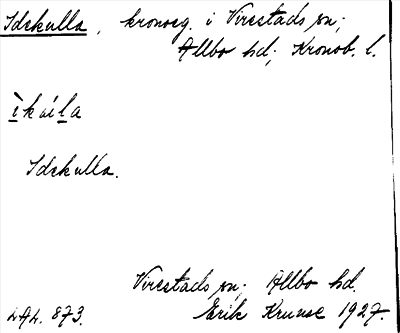 Idekulla, kronoeg. i Virestads sn;
Allbo hd; Kronob. l.
ìkuíla
Idekulla.
Virestads sn; Allbo hd.
LAL. 873. Erik Kruuse 1927.